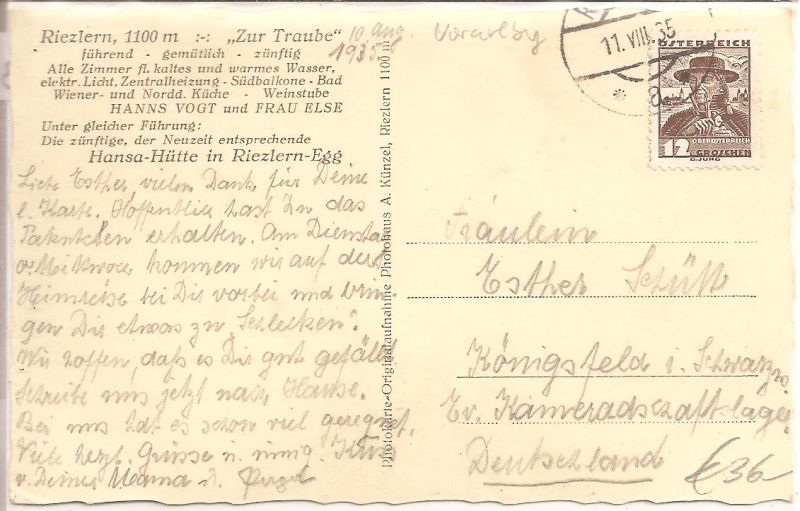 Riezlern, 1100 m :-: „Zur Traube"
führend - gemütlich - zünftig
Alle Zimmer fl. kaltes und warmes Wasser,
elektr. Licht, Zentralheizung - Südbalkone - Bad
Wiener- und Nordd. Küche - Weinstube
HANNS VOGT und FRAU ELSE
Unter gleicher Führung:
Die zünftige, der Neuzeit entsprechende
Hansa-Hütte in Riezlern-Egg
10. Aug.
1935
Vorarlbg
11. VIII. 35
ÖSTERREICH
OBERÖSTERREICH
12 GROSCHEN
G. JUNG
Liebe Esther, vielen Dank für Deine
l. Karte. Hoffentlich hast Du das
Paketchen erhalten. Am Dienstag
o. Mittwoch kommen wir auf der
Heimreise bei Dir vorbei und brin-
gen Dir etwas zu „Schlecken".
Wir hoffen, daß es Dir gut gefällt.
Schreibe uns jetzt nach Hause.
Bei uns hat es schon viel geregnet.
Viele herzl. Grüsse u. innig. Kuss
v. Deiner Mama u.
Photokarte-Originalaufnahme Photohaus A. Künzel, Riezlern 1100 m
Fräulein
Esther Schütt
Königsfeld i. Schwarzw.
Ev. Kameradschaftslager
Deutschland
€36